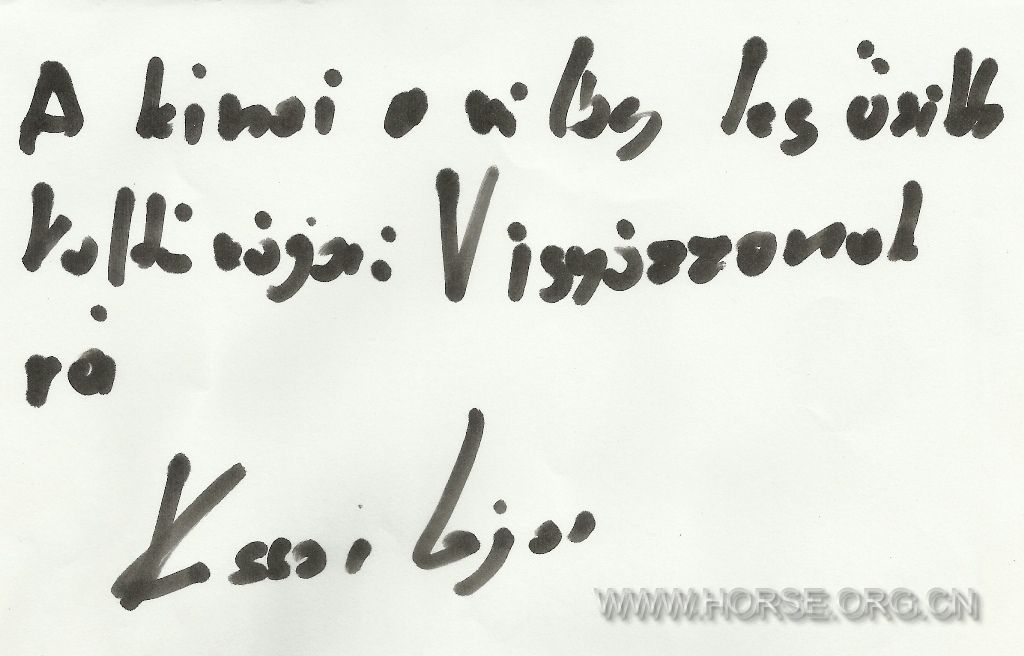 A kinai a világ leg ősibb
kultúrája: Vigyázzanak
rá
Kassai Lajos
WWW.HORSE.ORG.CN